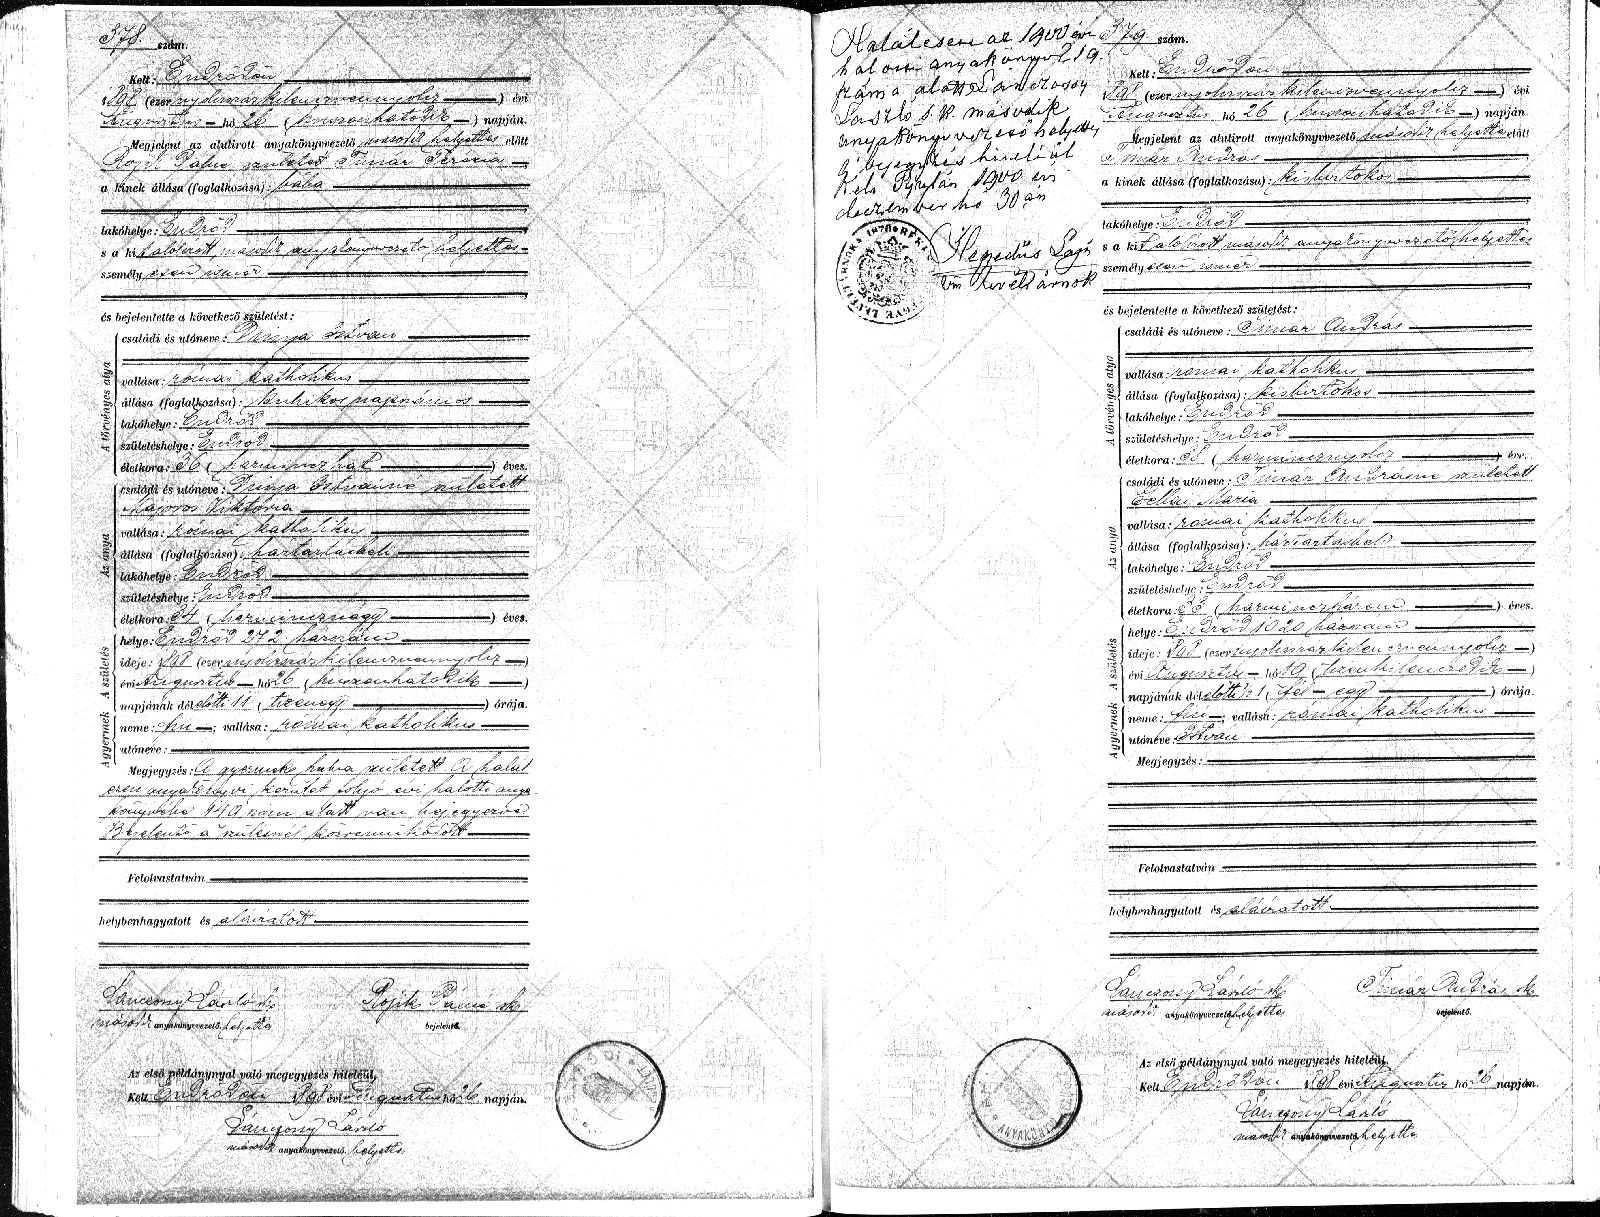 378 szám.
Kelt: Endrődön
1898 (ezer nyolcszázkilenczvennyolcz) évi
Augusztus hó 26 (huszonhatodik) napján.
Megjelent az alulirott anyakönyvvezető második helyettes előtt
született Timár Teréz
a kinek állása (foglalkozása): bába
lakóhelye: Endrőd
s a kit alólirott másodk anyakönyvvezető helyettes
személyesen ismer
és bejelentette a következő születést:
A törvényes atya
családi és utóneve: Dinya István
vallása: római katholikus
állása (foglalkozása): kubikos napszámos
lakóhelye: Endrőd
születéshelye: Endrőd
életkora: 36 (harminczhat) éves.
Az anya
családi és utóneve: Dinya Istvánné született
Majoros Viktória
vallása: római katholikus
állása (foglalkozása): háztartásbeli
lakóhelye: Endrőd
születéshelye: Endrőd
életkora: 34 (harmincznégy) éves.
A születés
helye: Endrőd 272 házszám
ideje: 1898 (ezer nyolcszázkilenczvennyolcz)
évi Augusztus hó 26 (huszonhatodik)
napjának délelőtti 11 (tizenegy) órája.
A gyermek
neme: fiu; vallása: római katholikus
utóneve:
Megjegyzés: A gyermek halva született. A halál
ezen anyakönyvi kerület folyó évi halotti anya-
könyvébe 149 szám alatt van bejegyezve
Bejelentő a szülésnél közreműködött
Felolvastatván
helybenhagyatott és aláiratott
Lánczosy László sk. Rojik Pálné sk.
másodk anyakönyvvezető helyettes bejelentő.
Az első példánynyal való megegyezés hiteléül,
Kelt Endrődön 1898 évi Augusztus hó 26 napján.
Lánczosy László
másodk anyakönyvvezető helyettes
Halálesete az 1900 évi
halotti anyakönyv 219
száma alatt Lánczosy
László s. k. második
anyakönyvvezető helyettes
bejegyzés hiteléül
Kelt Gyulán 1900 évi
deczember hó 30 án
Hegedűs Lajos
vm levéltárnok
379 szám.
Kelt: Endrődön
1898 (ezer nyolcszázkilenczvennyolcz) évi
Augusztus hó 26 (huszonhatodik) napján.
Megjelent az alulirott anyakönyvvezető másodk helyettes előtt
Timár András
a kinek állása (foglalkozása): kisbirtokos
lakóhelye: Endrőd
s a kit alólirott másodk anyakönyvvezető helyettes
személyesen ismer
és bejelentette a következő születést:
A törvényes atya
családi és utóneve: Timár András
vallása: római katholikus
állása (foglalkozása): kisbirtokos
lakóhelye: Endrőd
születéshelye: Endrőd
életkora: 38 (harmincznyolcz) éves.
Az anya
családi és utóneve: Timár Andrásné született
Mária
vallása: római katholikus
állása (foglalkozása): háztartásbeli
lakóhelye: Endrőd
születéshelye: Endrőd
életkora: 33 (harminczhárom) éves.
A születés
helye: Endrőd 1020 házszám
ideje: 1898 (ezer nyolcszázkilenczvennyolcz)
évi Augusztus hó 19 (tizenkilenczedik)
napjának délelőtti ½1 (fél egy) órája.
A gyermek
neme: fiu; vallása: római katholikus
utóneve: István
Megjegyzés:
Felolvastatván
helybenhagyatott és aláiratott
Lánczosy László sk Timár András sk
másodk anyakönyvvezető helyettes bejelentő.
Az első példánynyal való megegyezés hiteléül,
Kelt Endrődön 1898 évi Augusztus hó 26 napján.
Lánczosy László
másodk anyakönyvvezető helyettes